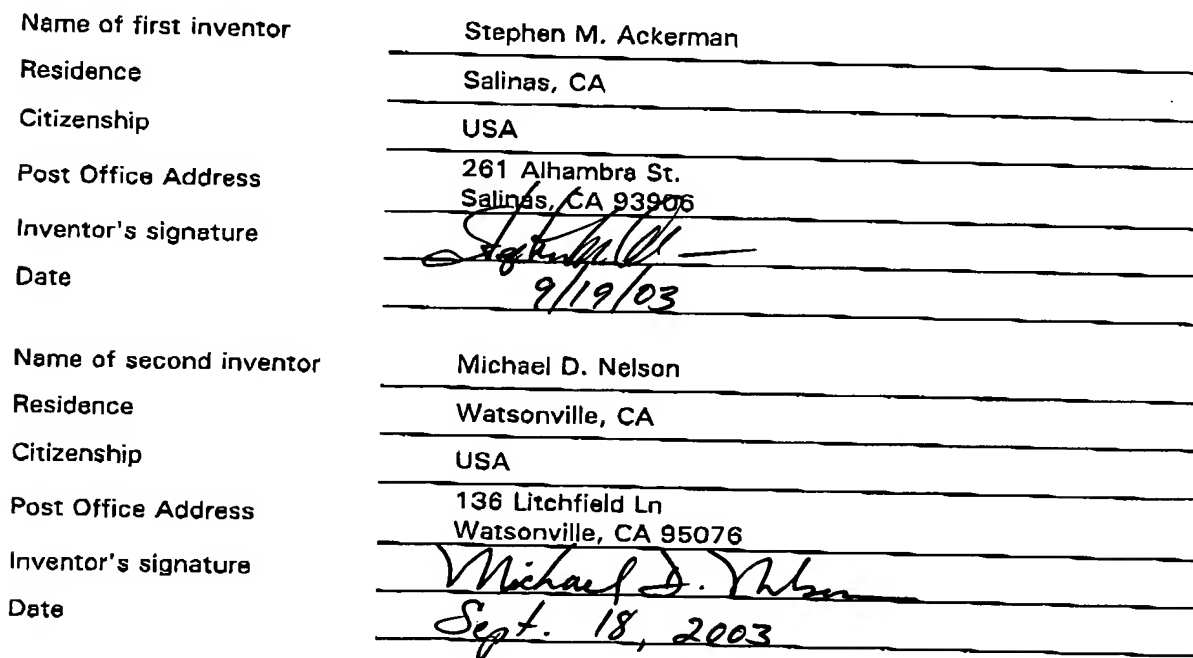 Name of first inventor Stephen M. Ackerman
Residence Salinas, CA
Citizenship USA
Post Office Address 261 Alhambra St.
Salinas, CA 93906
Inventor's signature
Date 9/19/03
Name of second inventor Michael D. Nelson
Residence Watsonville, CA
Citizenship USA
Post Office Address 136 Litchfield Ln
Watsonville, CA 95076
Inventor's signature Michael D. Nelson
Date Sept. 18, 2003